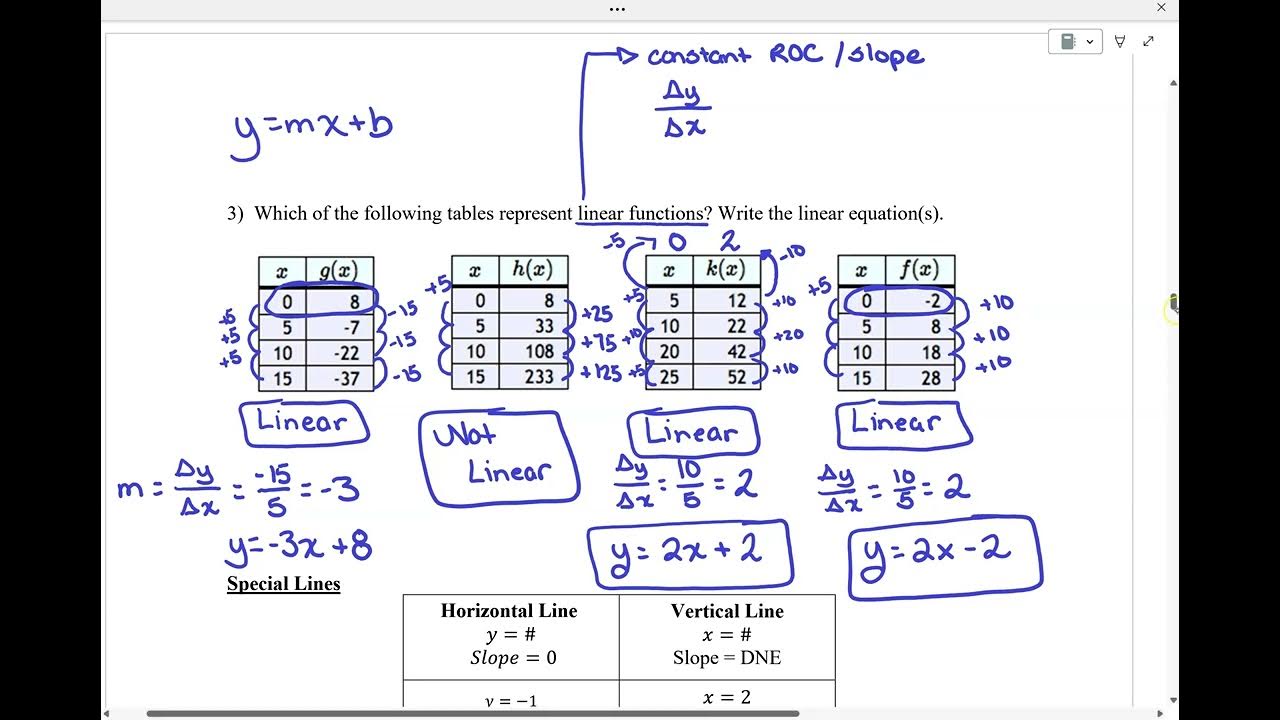 constant ROC / slope
Δy
Δx
y=mx+b
3) Which of the following tables represent linear functions? Write the linear equation(s).
-5 0 2 -10
x g(x)
0 8
5 -7
10 -22
15 -37
+5
+5
+5
-15
-15
-15
x h(x)
0 8
5 33
10 108
15 233
+5
+25
+75
+125
x k(x)
5 12
10 22
20 42
25 52
+5
+10
+5
+10
+20
+10
x f(x)
0 -2
5 8
10 18
15 28
+5
+10
+10
+10
Linear
Not
Linear
Linear
Linear
m = Δy/Δx = -15/5 = -3
y=-3x+8
Δy/Δx = 10/5 = 2
y = 2x + 2
Δy/Δx = 10/5 = 2
y = 2x - 2
Special Lines
Horizontal Line
y = #
Slope = 0
Vertical Line
x = #
Slope = DNE
y = −1
x = 2